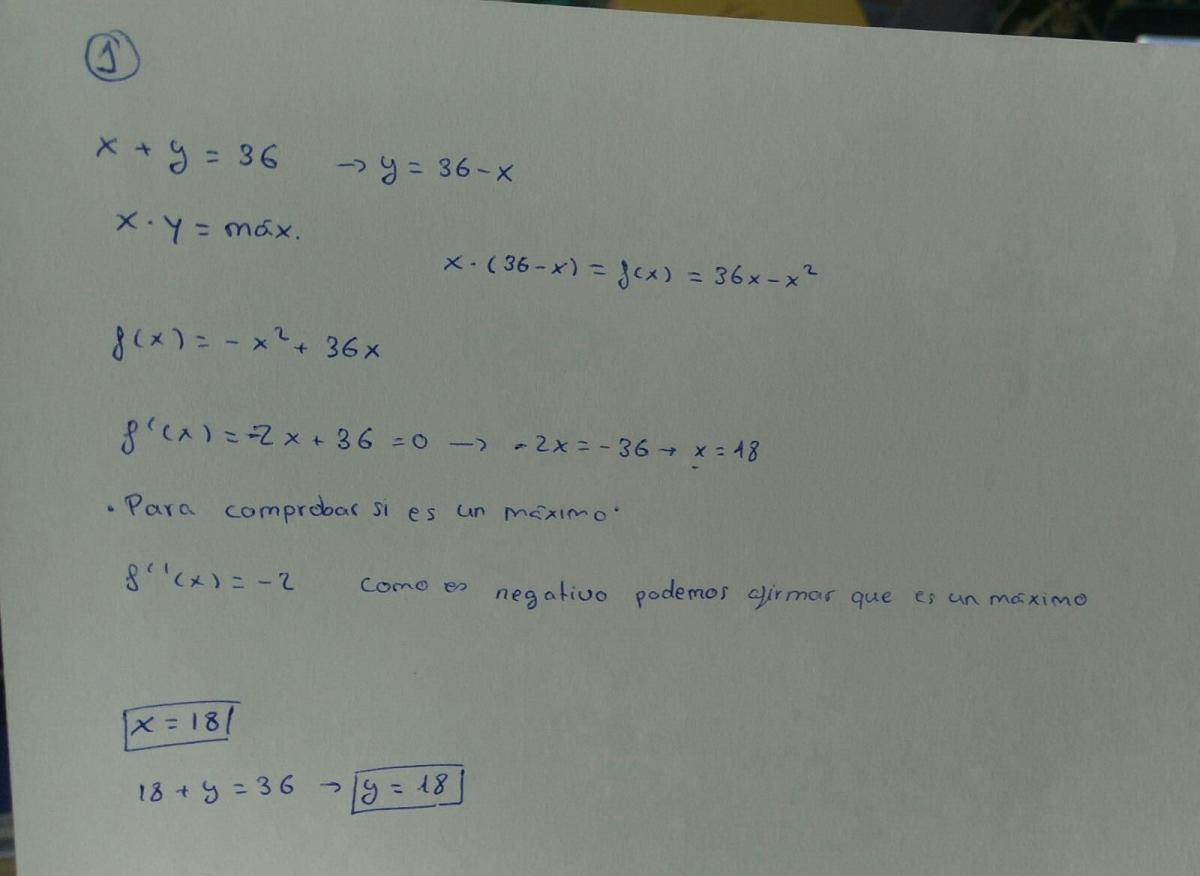 1
x + y = 36 → y = 36 - x
x · y = máx.
x · (36 - x) = f(x) = 36x - x²
f(x) = - x² + 36x
f'(x) = -2x + 36 = 0 → -2x = -36 → x = 18
· Para comprobar si es un máximo·
f''(x) = -2 como es negativo podemos afirmar que es un máximo
x = 18
18 + y = 36 → y = 18